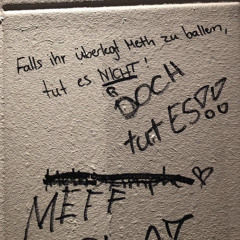 Falls ihr überlegt Meth zu ballern,
tut es NICHT!
DOCH
tut ES!!
MEFF